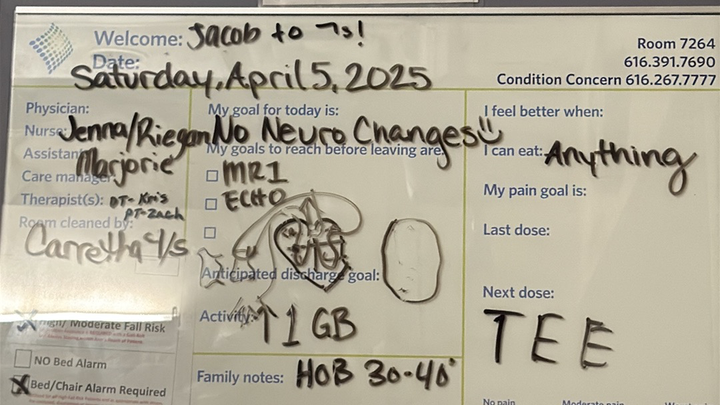 Welcome: Jacob to 7s!
Room 7264
Date:
616.391.7690
Saturday, April 5, 2025
Condition Concern 616.267.7777
Physician:
My goal for today is:
I feel better when:
Nurse: Jenna/Riegan
No Neuro Changes
Assistant
Marjorie
My goals to reach before leaving are:
I can eat: Anything
Care manager
MRI
My pain goal is:
Therapist(s): OT- Kris
PT- Zach
ECHO
Room cleaned by:
Last dose:
Carretha 4/5
Anticipated discharge goal:
Next dose:
Activity: ↑ 1 GB
TEE
High/ Moderate Fall Risk
NO Bed Alarm
Bed/Chair Alarm Required
Family notes: HOB 30-40°
No pain
Moderate pain